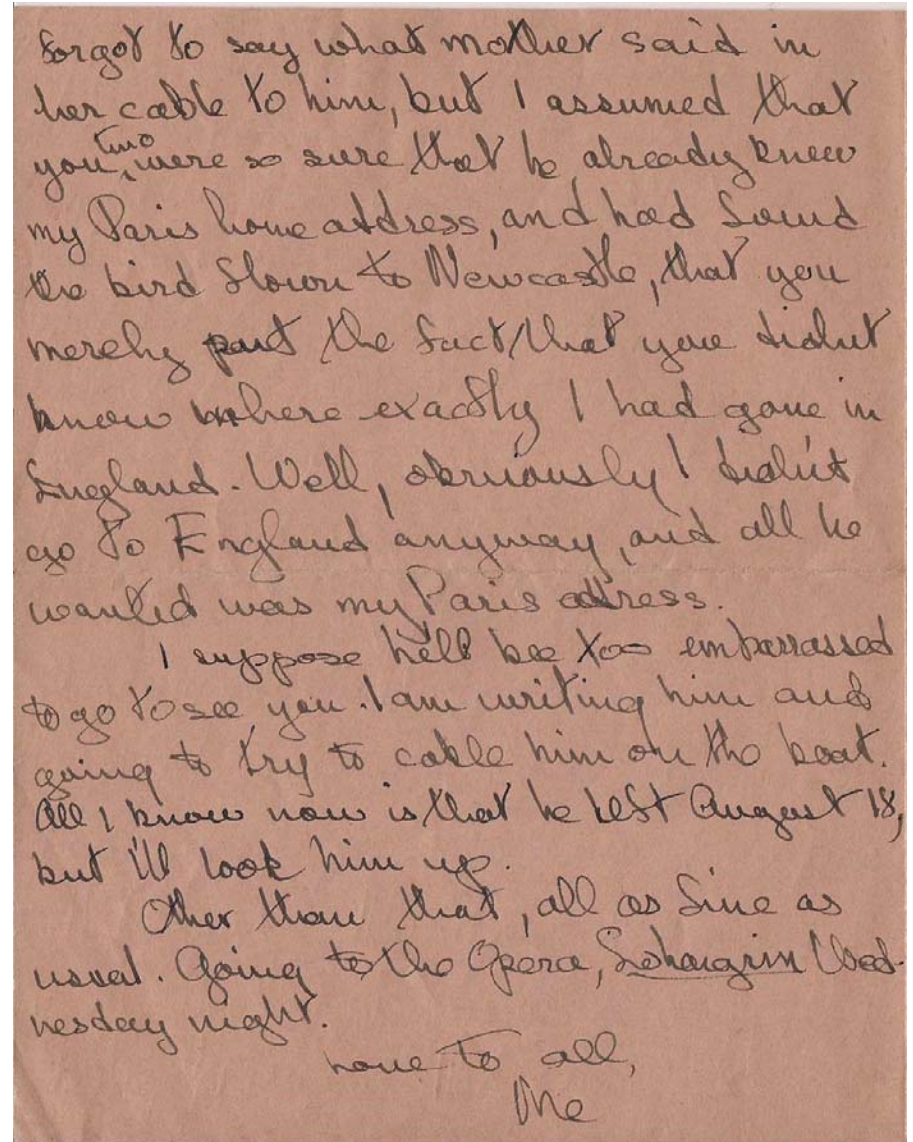 forgot to say what mother said in
her cable to him, but I assumed that
you two were so sure that he already knew
my Paris home address, and had found
the bird flown to Newcastle, that you
merely put the fact that you didnt
know where exactly I had gone in
England. Well, obviously I didn't
go to England anyway, and all he
wanted was my Paris address.
I suppose he'll be too embarrassed
to go to see you. I am writing him and
going to try to cable him on the boat.
All I know now is that he left August 18,
but I'll look him up.
Other than that, all as fine as
usual. Going to the Opera, Lohengrin Wed-
nesday night.
Love to all,
Me